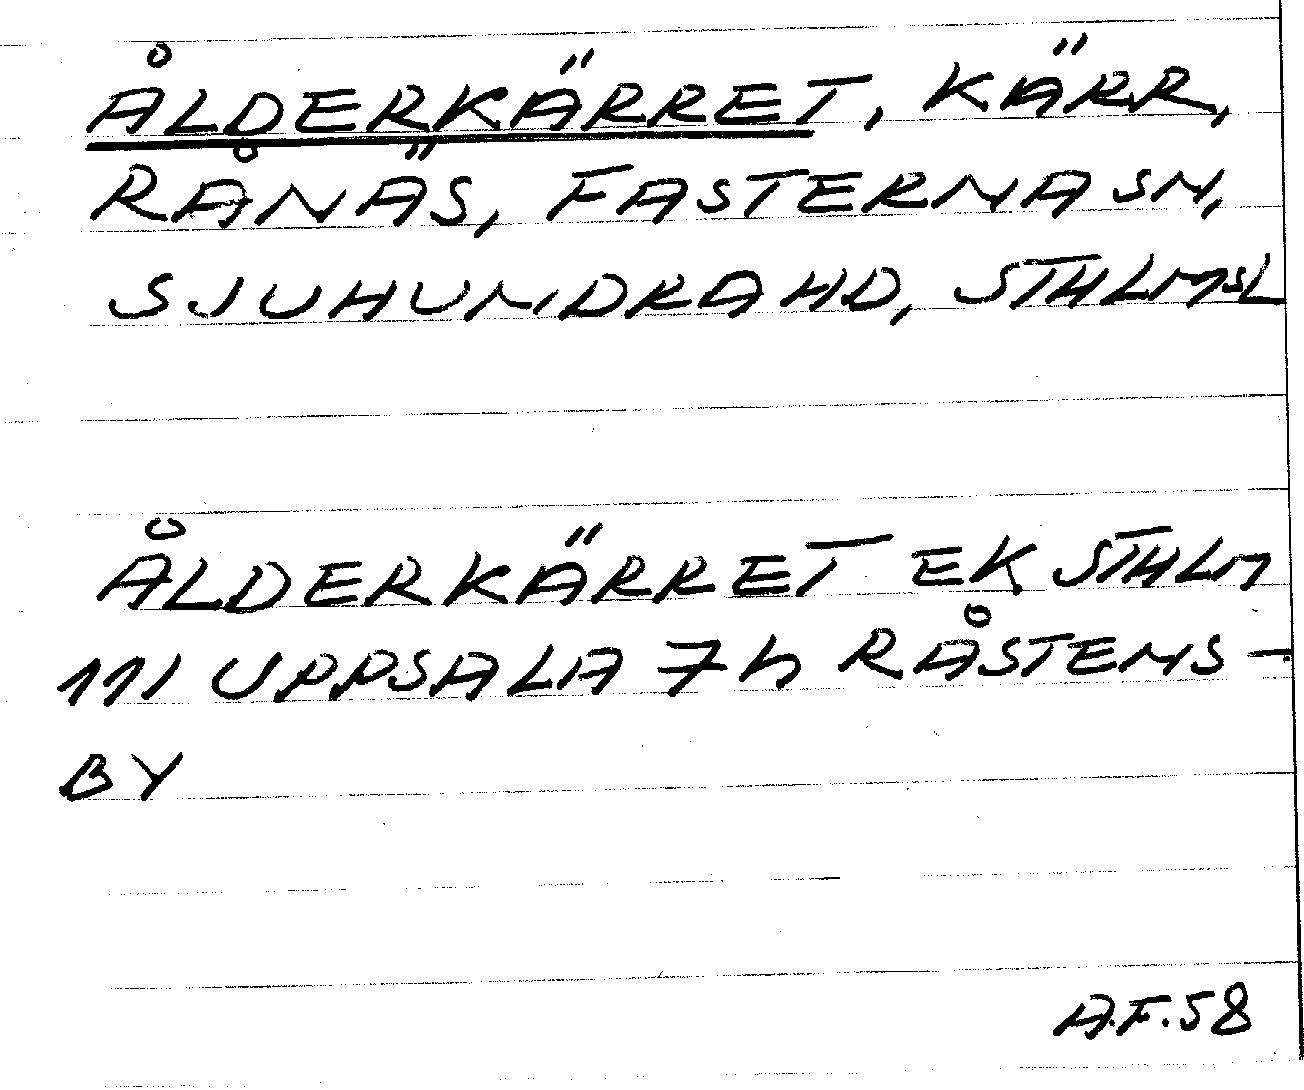 ÅLDERKÄRRET, KÄRR,
RÅNÄS, FASTERNA SN,
SJUHUNDRA HD, STHLMSL
ÅLDERKÄRRET EK STHLM
111 UPPSALA 7h RÅSTENS-
BY
A.F. 58